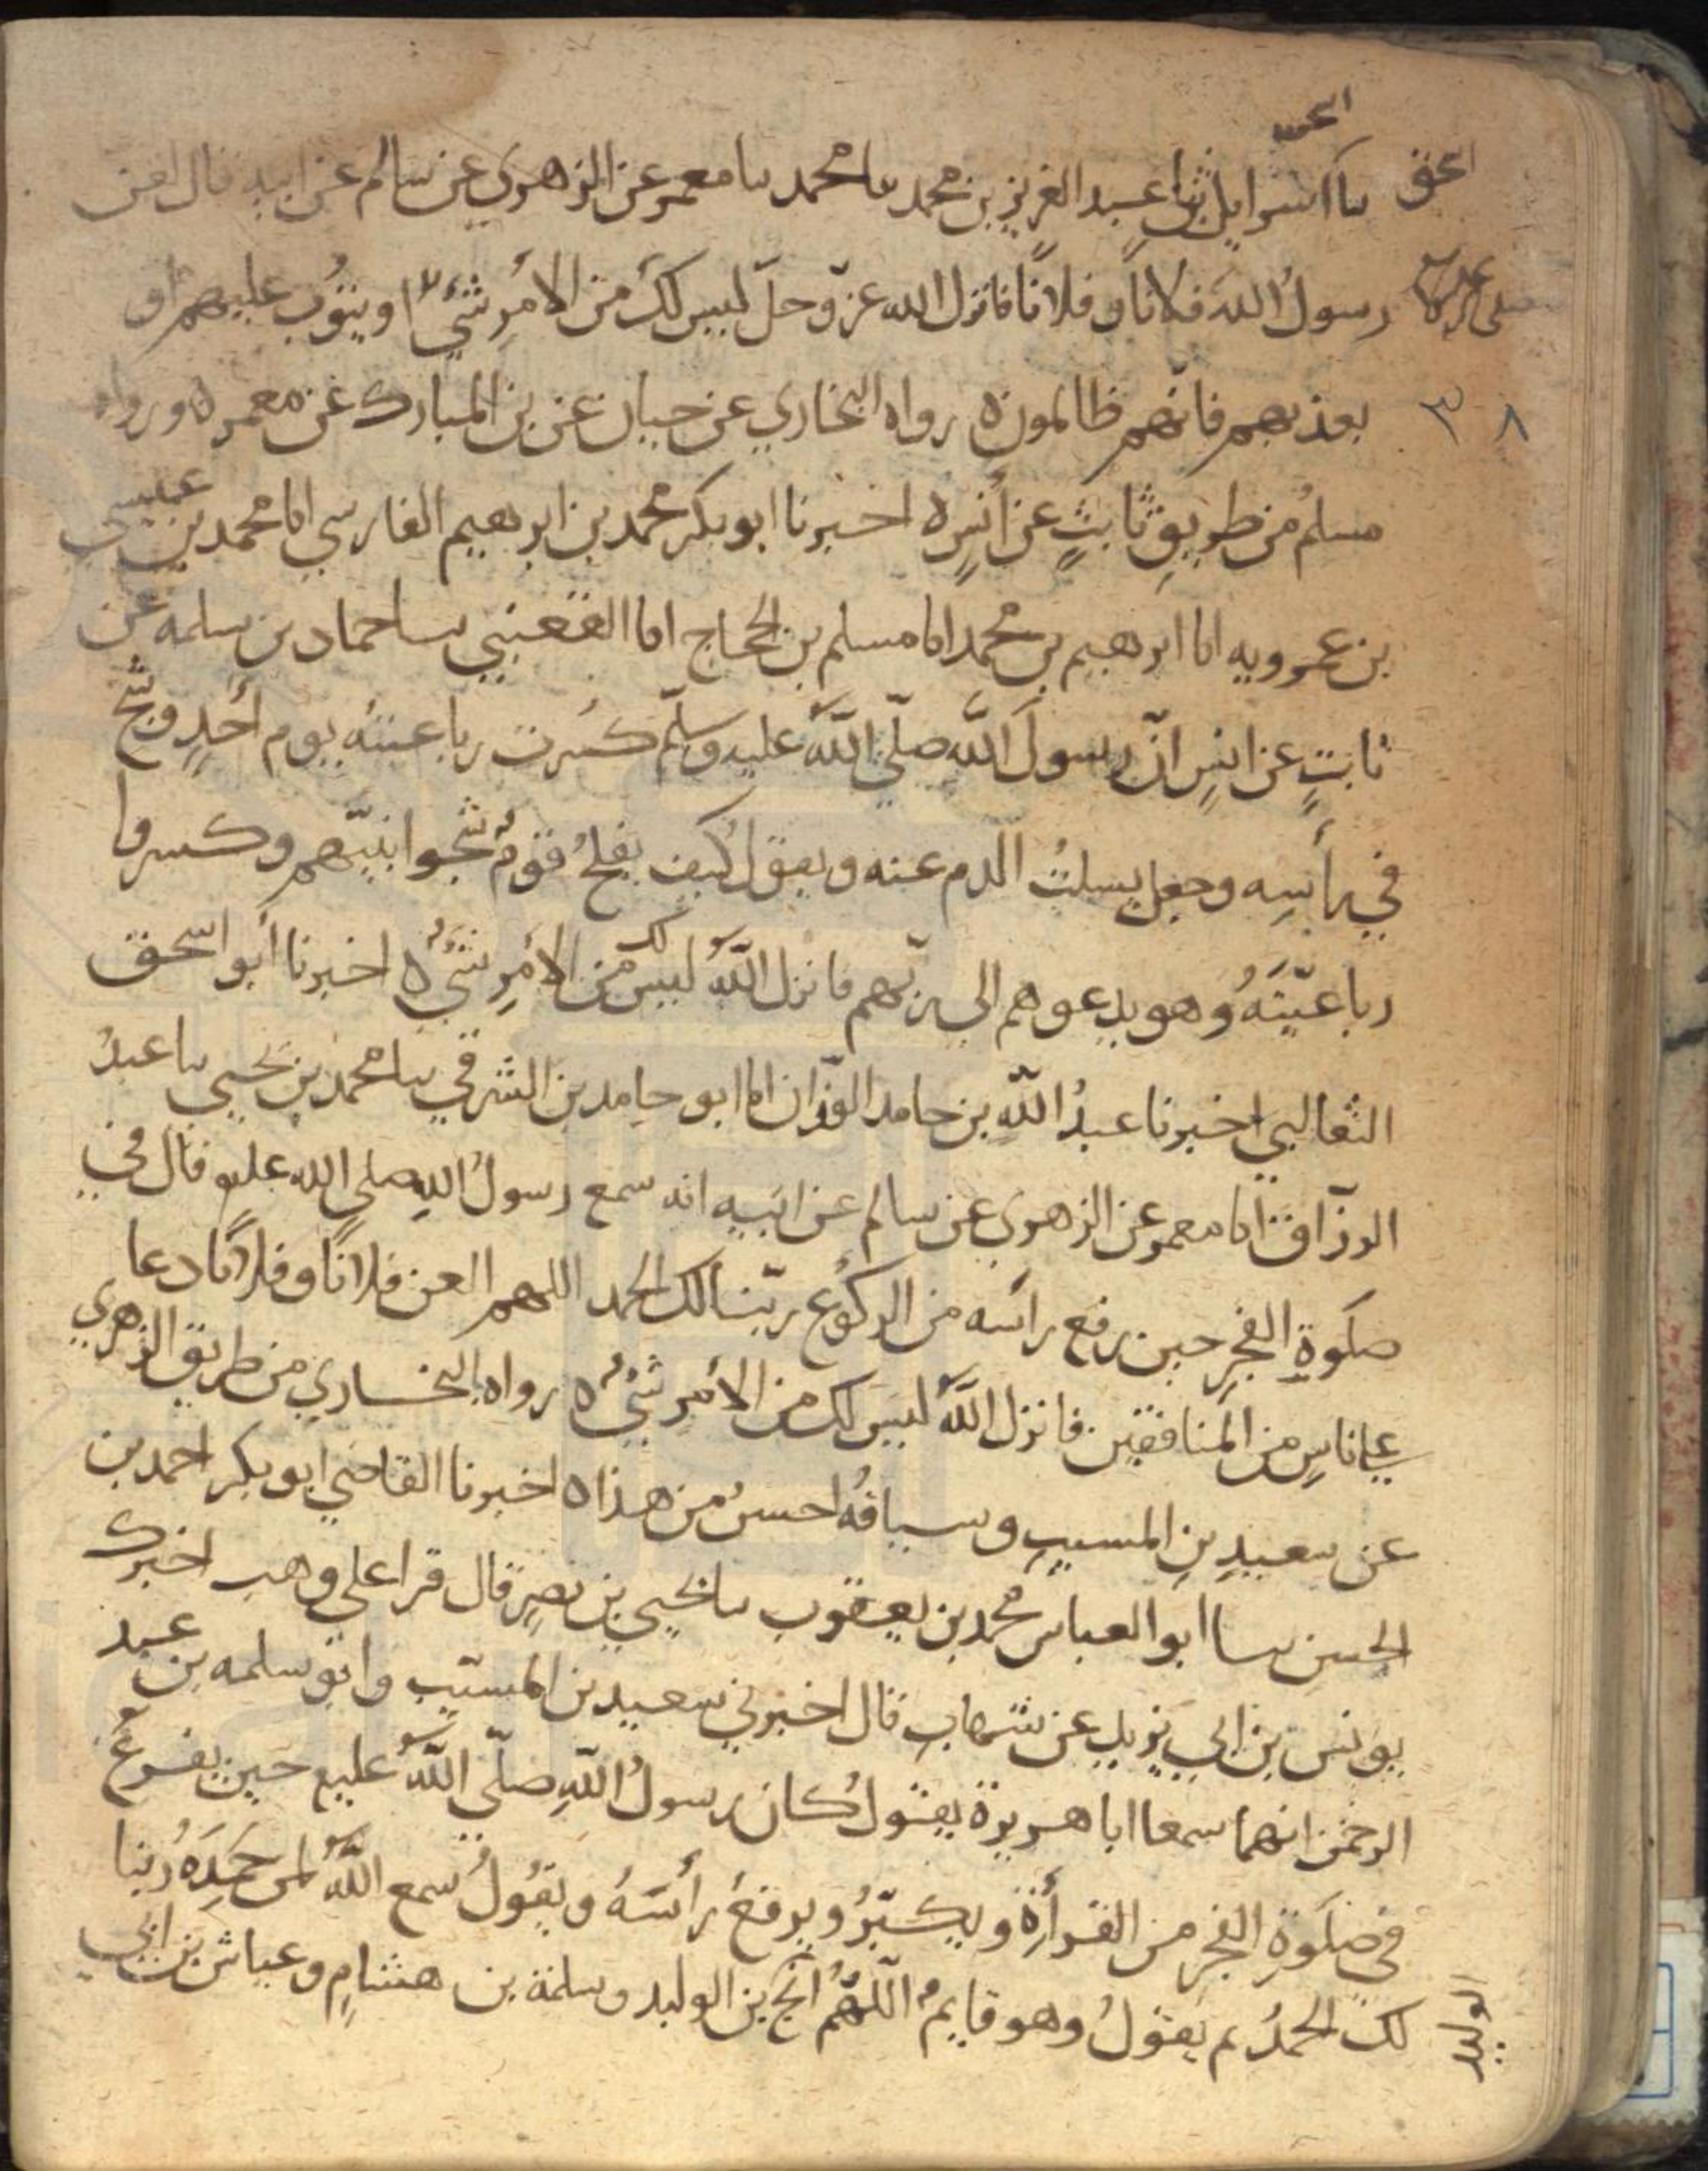 اسحق
اسحق نا اسرايل نا عبد العزيز بن محمد نا محمد نا معمر عن الزهري عن سالم عن ابيه قال لعن
رسولُ الله فلانًا وفلانًا فانزل الله عزّ وجلّ ليس لكَ من الامْرِ شيْءٌ او يتوب عليهم او
٣٨ يعذبهم فانّهم ظالمون ه رواه البخاري عن حبان عن بن المبارك عن معمر ه ورواه
مسلمُ من طريقِ ثابتٍ عن أنسٍ ه اخبرنا ابو بكر محمد بن ابرهيم الفارسي انا محمد بن عيسى
بن عمرويه انا ابرهيم بن محمد انا مسلم بن الحجاج انا القعنبي نا حماد بن سلمه عن
ثابتٍ عن انسٍ انّ رسولَ اللَّه صلّى اللَّه عليه وسلّم كُسرت رباعيتهُ يوم أُحُدٍ وشُجَّ
في رأسِه وجعل يسلتُ الدم عنه ويقول كيف يفلحُ قوْمٌ شجوا نبيّهم وكسروا
رباعيّتَهُ وهو يدعوهم الى ربّهم فانزل اللَّهُ ليس لك من الامْرِ شيْءٌ ه اخبرنا أبو اسحق
الثعالبي اخبرنا عبدُ اللَّهِ بن حامد الوزّان انا ابو حامد بن الشرقي نا محمد بن يحيى نا عبدُ
الرزّاق انا معمر عن الزهري عن سالم عن ابيه انه سمع رسولُ اللهِ صلى الله عليه قال في
صلوةِ الفجرِ حين رفع راسه من الركُوع ربّنا لك الحمد اللهم العن فلانًا وفلانًا دعا
على اناسٍ من المنافقين فانزل اللَّهُ ليس لك من الأمر شيْءٌ ه رواه البخاري من طريق الزهري
عن سعيدِ بنِ المسيبِ وسياقُهُ احسنُ من هذا ه اخبرنا القاضي ابو بكر احمد بن
الحسن نا ابو العباس محمد بن يعقوب نا يحيى بن نصرٍ قال قرا على وهب اخبرك
يونس بن ابي يزيد عن شهاب قال اخبرني سعيد بن المسيّب وابو سلمه بن عبد
الرحمن انهما سمعا ابا هريرة يقولُ كان رسولُ اللّهِ صلّى اللَّهُ عليه حين يفرغُ
في صلَوةِ الفجرِ من القرأةِ ويكبّرُ ويرفعُ رأسَهُ ويقُولُ سمع اللَّهُ لمن حَمِدَهُ ربّنا
لك الحمدُ ثم يقولُ وهو قايمٌ اللَّهُمَّ أنجِ بن الوليد وسلمة بن هشامٍ وعياش بن ابي
الوليد